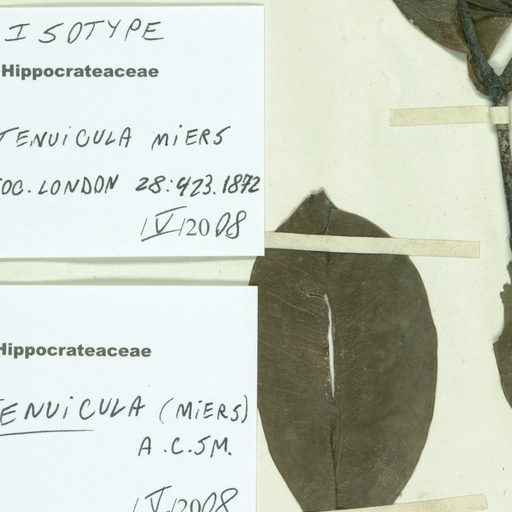 ISOTYPE
Hippocrateaceae
TENUICULA MIERS
OC. LONDON 28:423.1872
IV 2008
Hippocrateaceae
ENUICULA (MIERS)
A.C.SM.
IV 2008